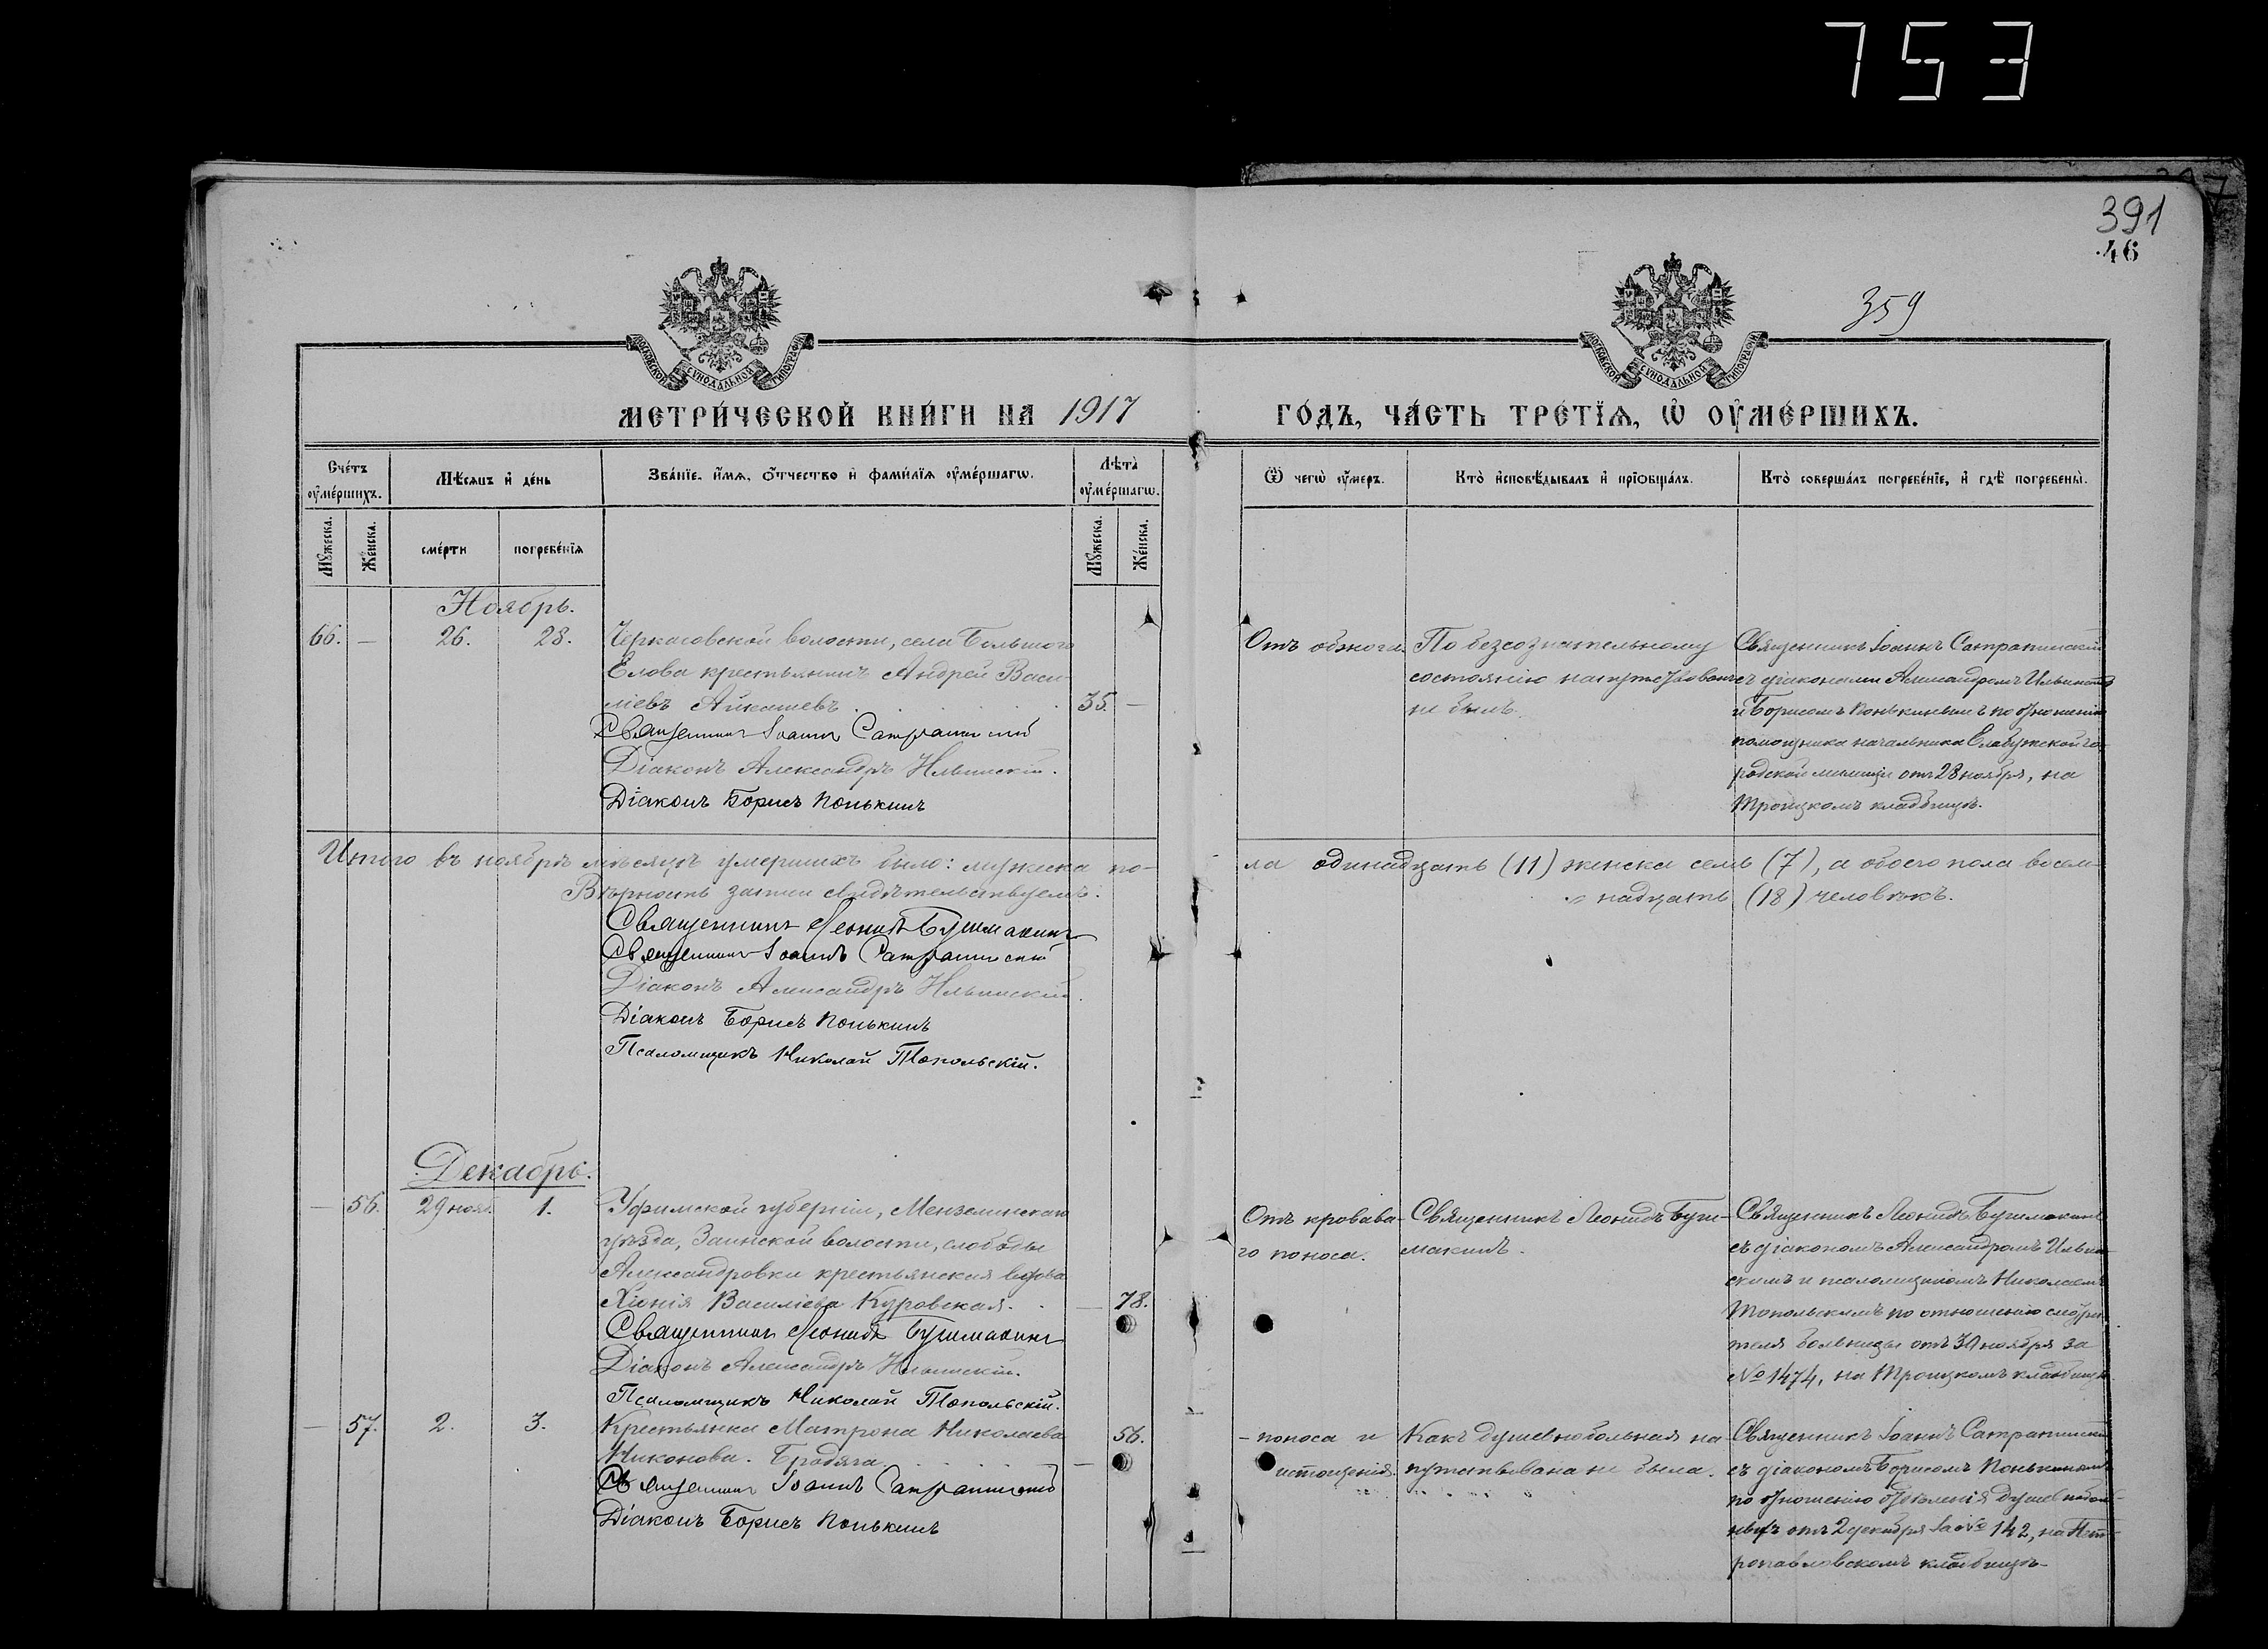 753
391
46
359
МОСКОВСКОЙ СѴНОДАЛЬНОЙ ТИПОГРАФІИ
МОСКОВСКОЙ СѴНОДАЛЬНОЙ ТИПОГРАФІИ
МЕТРИ́ЧЕСКОЙ КНИ́ГИ НА 1917 ГО́ДЪ, ЧА́СТЬ ТРЕ́ТІѦ, Ѡ҆ ОУ҆МЕ́РШИХЪ.
Сче́тъ оу҆ме́ршихъ.
Мѣ́сяцъ и҆ де́нь
Зва́нїе, и҆́мѧ, ѻ҆́тчество и҆ фами́лїѧ оу҆ме́ршагѡ.
Лѣта̀ оу҆ме́ршагѡ.
Ѿ чегѡ̀ оу҆́меръ.
Кто̀ и҆сповѣ́дывалъ и҆ прїѡбща́лъ.
Кто̀ соверша́лъ погребе́нїе, и҆ гдѣ̀ погребены̀.
Мꙋ́жеска.
Же́нска.
сме́рти
погребе́нїѧ
Мꙋ́жеска.
Же́нска.
Ноябрь.
66. — 26. 28.
Черкасовской волости, села Большого
Елова крестьянинъ Андрей Васи-
ліевъ Айкашевъ . 35. —
Священникъ Іоаннъ Сатрапинскій
Діаконъ Александръ Ильинскій.
Діаконъ Борисъ Понькинъ
Отъ обжога.
По безсознательному
состоянію напутствованъ
не былъ.
Священникъ Іоаннъ Сатрапинскій
съ діаконами Александромъ Ильинскимъ
и Борисомъ Понькинымъ по отношенію
помощника начальника Елабужской го-
родской милиціи отъ 28 ноября, на
Троицкомъ кладбищѣ.
Итого въ ноябрѣ мѣсяцѣ умершихъ было: мужеска по-
ла одинадцать (11) женска семь (7), а обоего пола восем-
надцать (18) человѣкъ.
Вѣрность записи свидѣтельствуемъ:
Священникъ Леонидъ Бушмакинъ
Священникъ Іоаннъ Сатрапинскій
Діаконъ Александръ Ильинскій.
Діаконъ Борисъ Понькинъ
Псаломщикъ Николай Топольскій.
Декабрь.
— 56. 29 нояб. 1.
Уфимской губерніи, Мензелинскаго
уѣзда, Заинской волости, слободы
Александровки крестьянская вдова
Хіонія Василіева Куровская. — 78.
Священникъ Леонидъ Бушмакинъ
Діаконъ Александръ Ильинскій.
Псаломщикъ Николай Топольскій.
Отъ кровава-
го поноса.
Священникъ Леонидъ Буш-
макинъ.
Священникъ Леонидъ Бушмакинъ
съ діакономъ Александромъ Ильин-
скимъ и псаломщикомъ Николаемъ
Топольскимъ по отношенію смотри-
теля больницы отъ 30 ноября за
№ 1474, на Троицкомъ кладбищѣ.
— 57. 2. 3.
Крестьянка Матрона Николаева
Никонова. Бродяга. — 56.
Священникъ Іоаннъ Сатрапинскій
Діаконъ Борисъ Понькинъ
- поноса и
истощенія.
Какъ душевнобольная на-
путствована не была.
Священникъ Іоаннъ Сатрапинскій
съ діакономъ Борисомъ Понькинымъ
по отношенію отдѣленія душевнобол-
ныхъ отъ 2 декабря за № 142, на Пет-
ропавловскомъ кладбищѣ